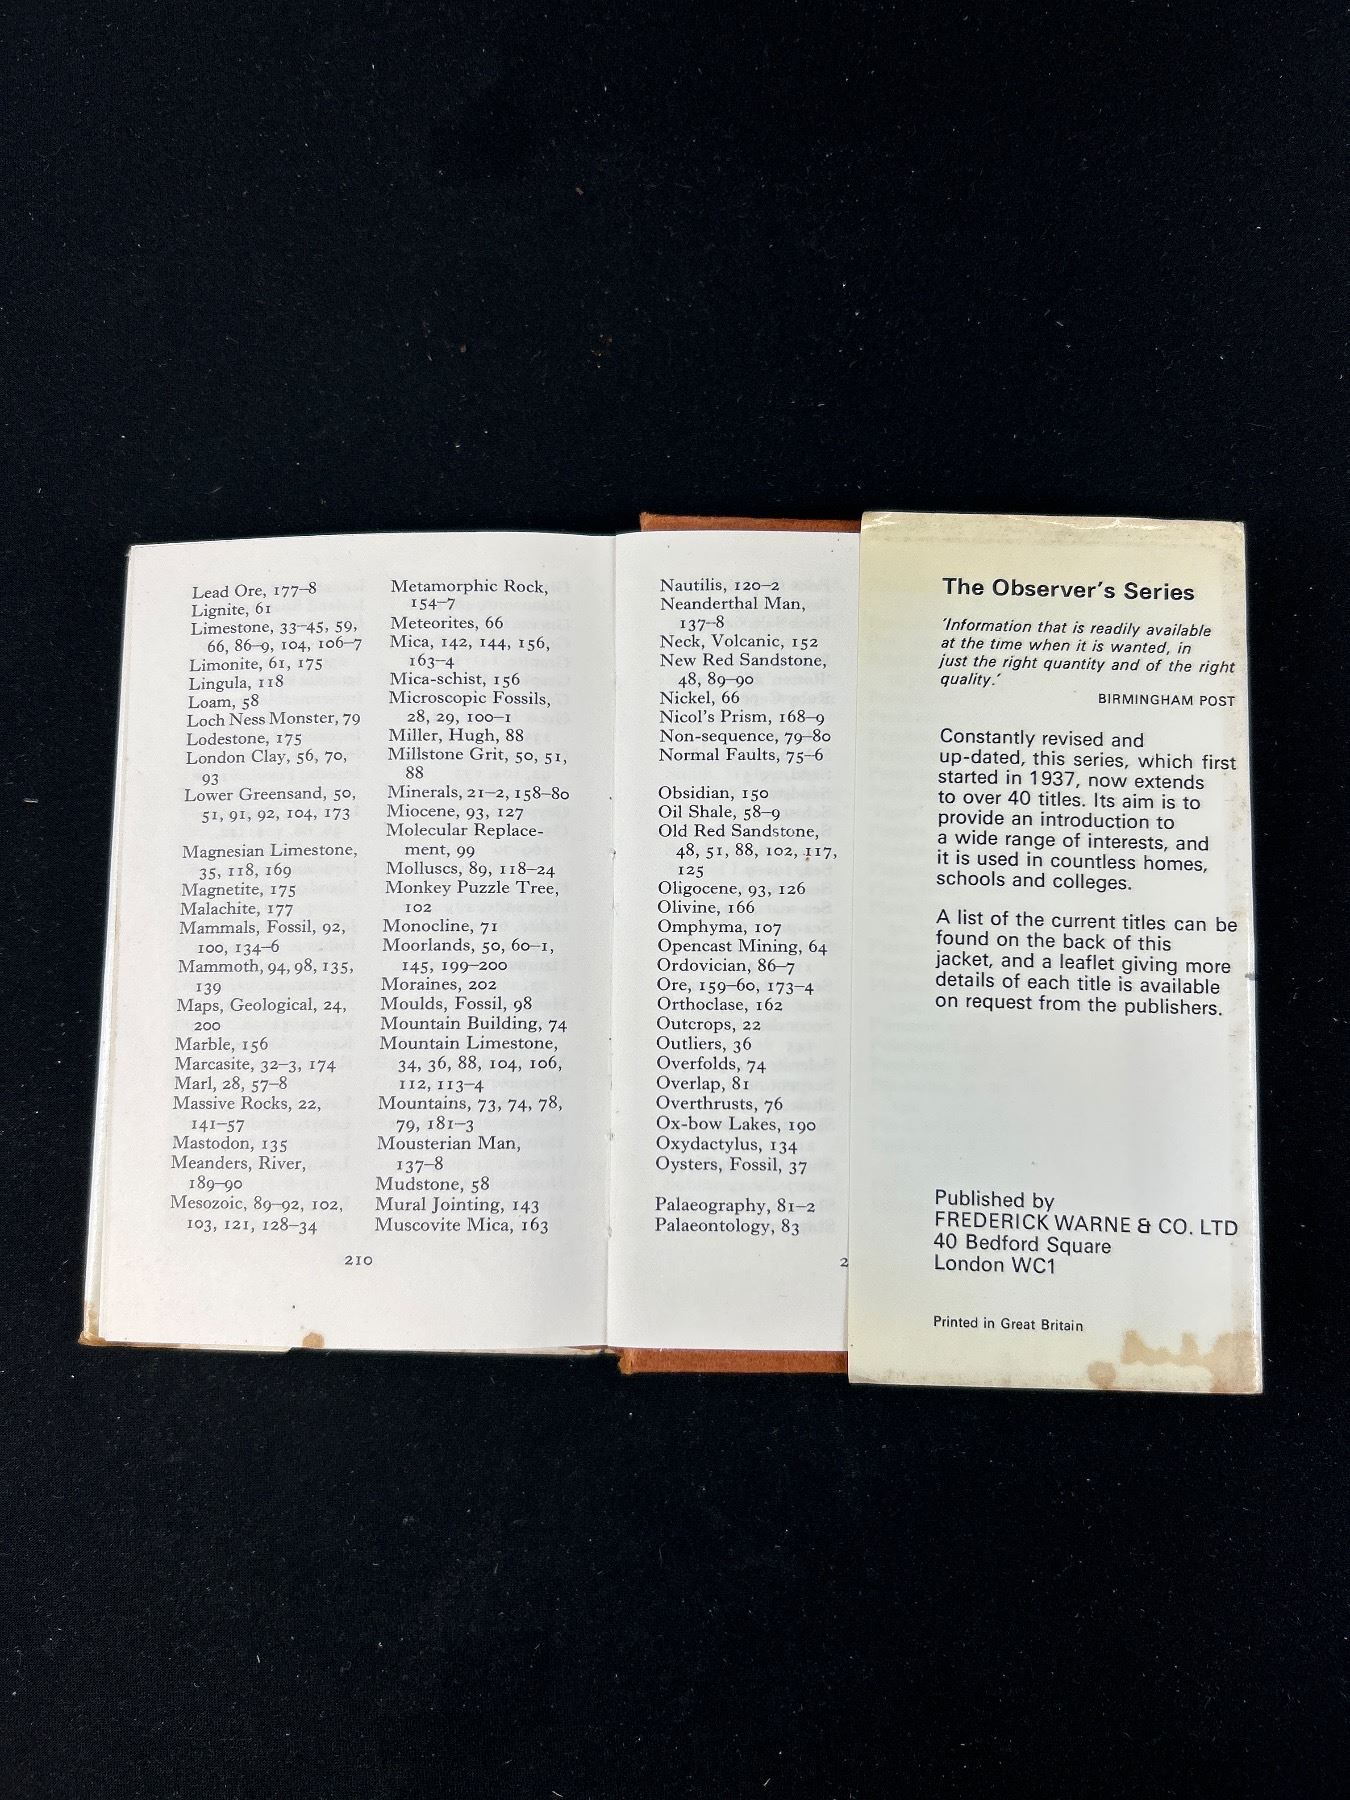 Lead Ore, 177–8
Lignite, 61
Limestone, 33–45, 59,
66, 86–9, 104, 106–7
Limonite, 61, 175
Lingula, 118
Loam, 58
Loch Ness Monster, 79
Lodestone, 175
London Clay, 56, 70,
93
Lower Greensand, 50,
51, 91, 92, 104, 173
Magnesian Limestone,
35, 118, 169
Magnetite, 175
Malachite, 177
Mammals, Fossil, 92,
100, 134–6
Mammoth, 94, 98, 135,
139
Maps, Geological, 24,
200
Marble, 156
Marcasite, 32–3, 174
Marl, 28, 57–8
Massive Rocks, 22,
141–57
Mastodon, 135
Meanders, River,
189–90
Mesozoic, 89–92, 102,
103, 121, 128–34
Metamorphic Rock,
154–7
Meteorites, 66
Mica, 142, 144, 156,
163–4
Mica-schist, 156
Microscopic Fossils,
28, 29, 100–1
Miller, Hugh, 88
Millstone Grit, 50, 51,
88
Minerals, 21–2, 158–80
Miocene, 93, 127
Molecular Replace-
ment, 99
Molluscs, 89, 118–24
Monkey Puzzle Tree,
102
Monocline, 71
Moorlands, 50, 60–1,
145, 199–200
Moraines, 202
Moulds, Fossil, 98
Mountain Building, 74
Mountain Limestone,
34, 36, 88, 104, 106,
112, 113–4
Mountains, 73, 74, 78,
79, 181–3
Mousterian Man,
137–8
Mudstone, 58
Mural Jointing, 143
Muscovite Mica, 163
210
Nautilis, 120–2
Neanderthal Man,
137–8
Neck, Volcanic, 152
New Red Sandstone,
48, 89–90
Nickel, 66
Nicol's Prism, 168–9
Non-sequence, 79–80
Normal Faults, 75–6
Obsidian, 150
Oil Shale, 58–9
Old Red Sandstone,
48, 51, 88, 102, 117,
125
Oligocene, 93, 126
Olivine, 166
Omphyma, 107
Opencast Mining, 64
Ordovician, 86–7
Ore, 159–60, 173–4
Orthoclase, 162
Outcrops, 22
Outliers, 36
Overfolds, 74
Overlap, 81
Overthrusts, 76
Ox-bow Lakes, 190
Oxydactylus, 134
Oysters, Fossil, 37
Palaeography, 81–2
Palaeontology, 83
2
The Observer's Series
'Information that is readily available
at the time when it is wanted, in
just the right quantity and of the right
quality.'
BIRMINGHAM POST
Constantly revised and
up-dated, this series, which first
started in 1937, now extends
to over 40 titles. Its aim is to
provide an introduction to
a wide range of interests, and
it is used in countless homes,
schools and colleges.
A list of the current titles can be
found on the back of this
jacket, and a leaflet giving more
details of each title is available
on request from the publishers.
Published by
FREDERICK WARNE & CO. LTD
40 Bedford Square
London WC1
Printed in Great Britain